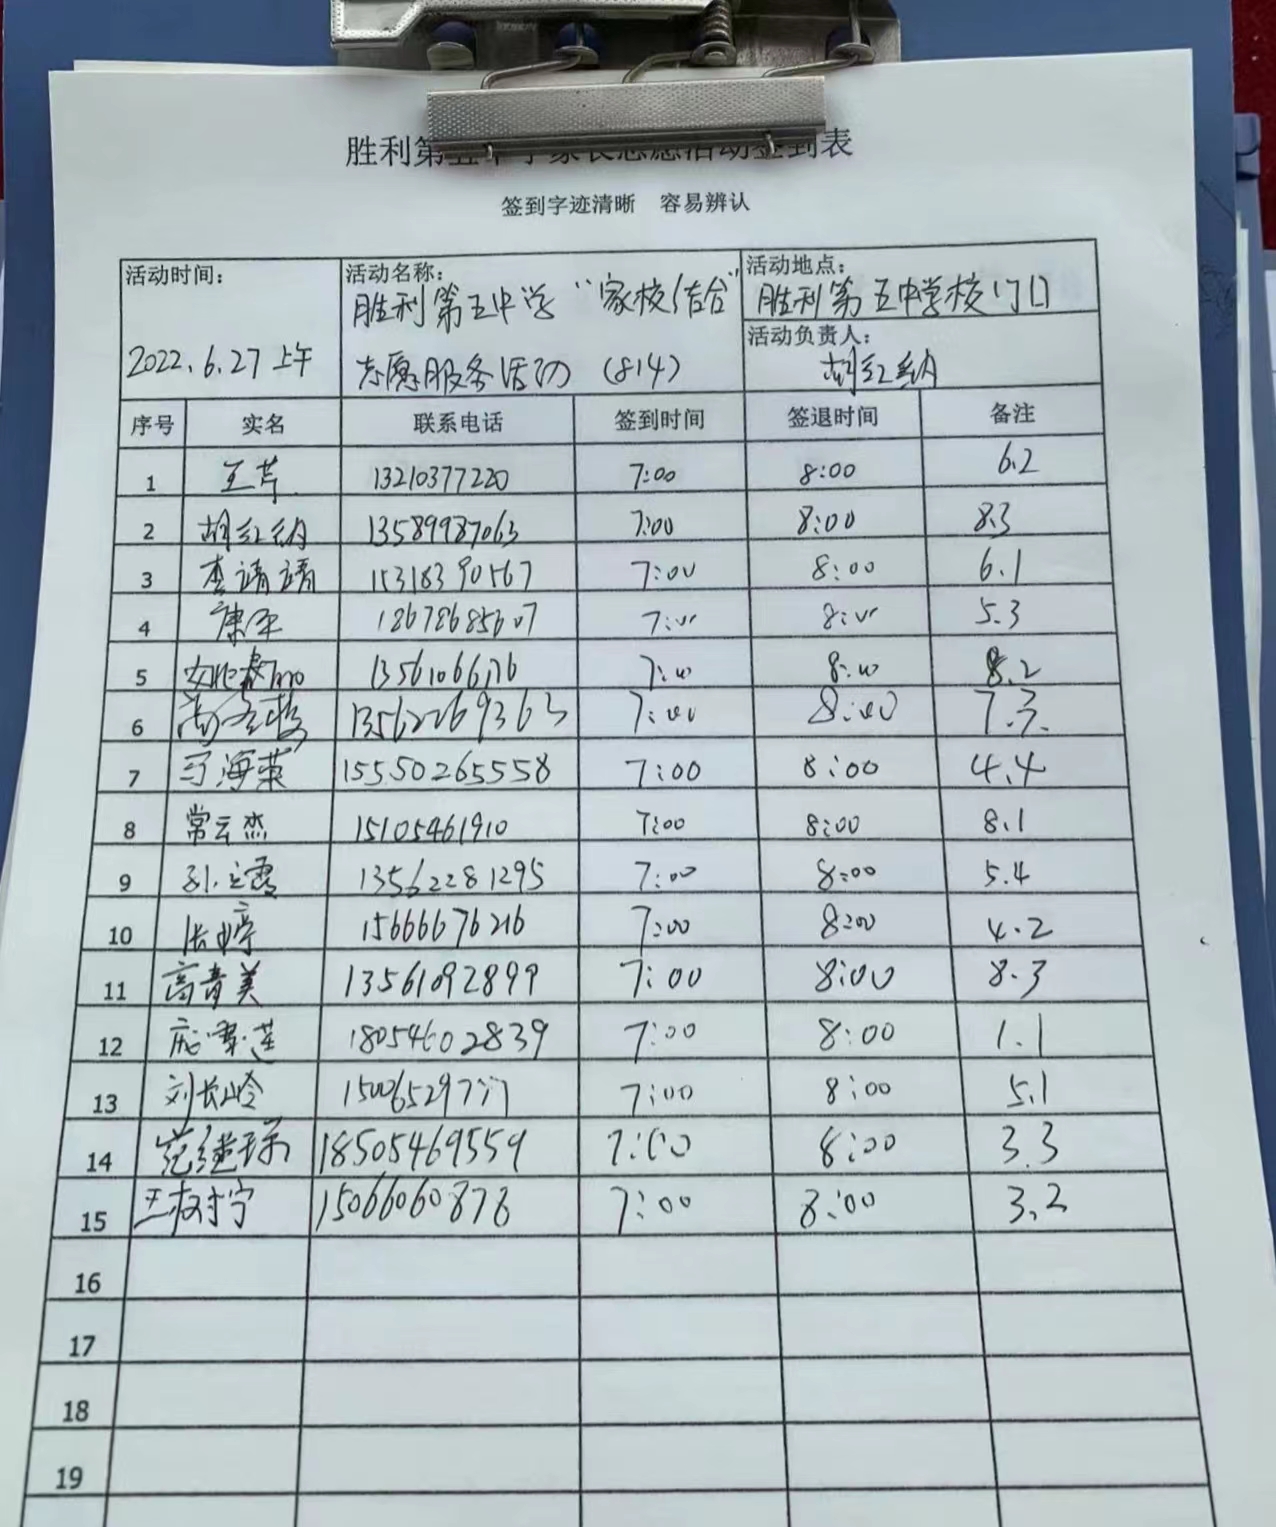 胜利第五中学家长志愿活动签到表
签到字迹清晰 容易辨认
活动时间：
2022.6.27上午
活动名称：
胜利第五中学“家校结合”
志愿服务活动（814）
活动地点：
胜利第五中学校门口
活动负责人：
胡红纳
序号 实名 联系电话 签到时间 签退时间 备注
1 王芹 13210377220 7:00 8:00 6.2
2 胡红纳 13589987063 7:00 8:00 8.3
3 李请请 15318390567 7:00 8:00 6.1
4 康平 18678685607 7:00 8:00 5.3
5 7:00 8:00 8.2
6 13562269363 7:00 8:00 7.3
7 马海燕 15550265558 7:00 8:00 4.4
8 常云杰 15105461910 7:00 8:00 8.1
9 孙立霞 13562281295 7:00 8:00 5.4
10 张婷 15666676216 7:00 8:00 4.2
11 高青美 13561092899 7:00 8:00 8.3
12 18054602839 7:00 8:00 1.1
13 刘长岭 7:00 8:00 5.1
14 范继琼 18505469559 7:00 8:00 3.3
15 王树宁 15066060878 7:00 8:00 3.2
16
17
18
19